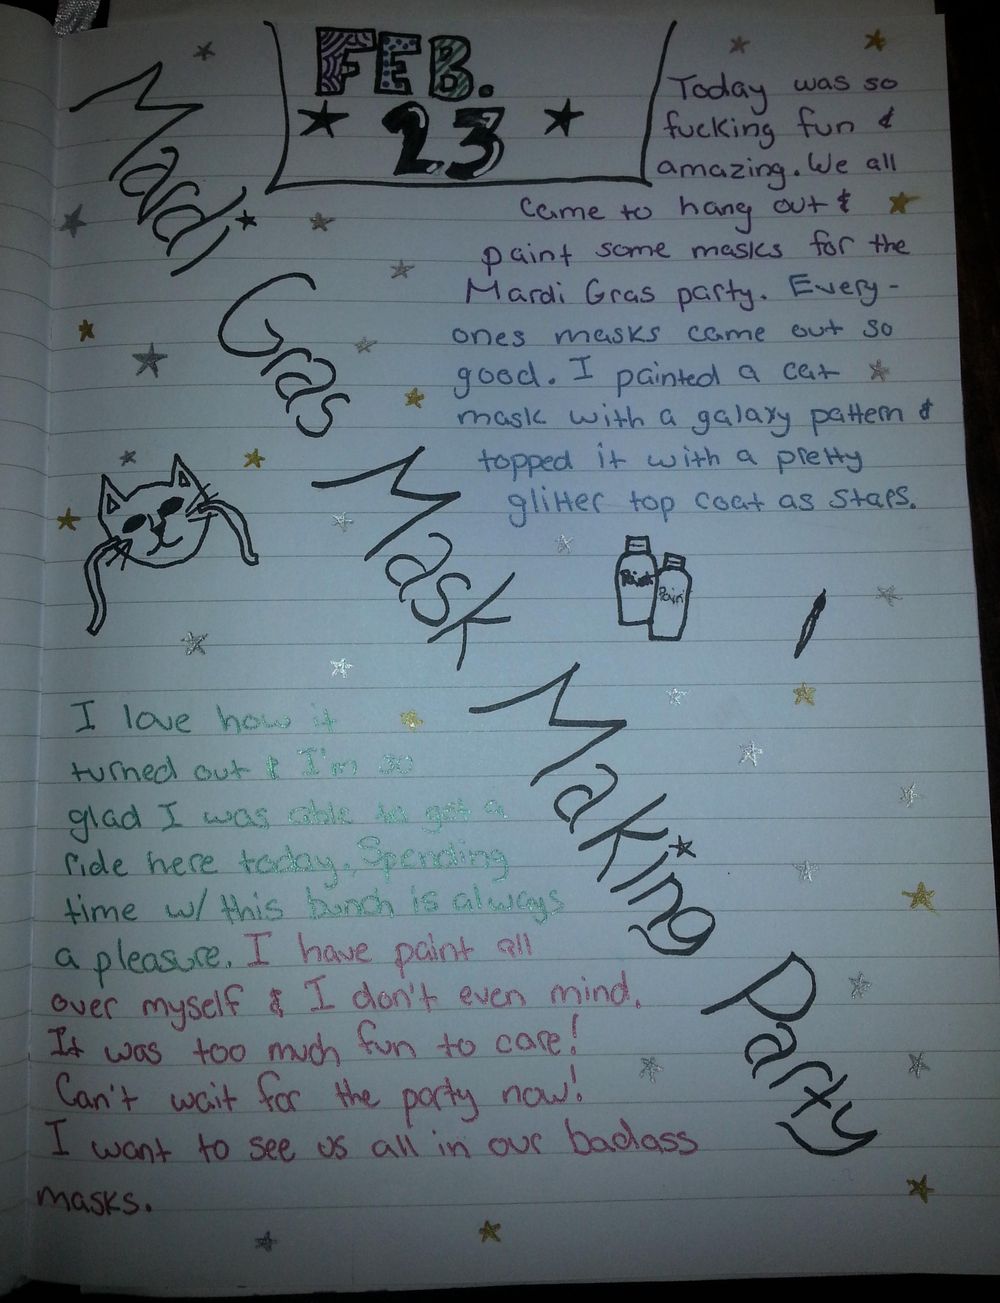 FEB.
23
Madi Gras Mask Making Party
Today was so
fucking fun &
amazing. We all
came to hang out &
paint some masks for the
Mardi Gras party. Every-
ones masks came out so
good. I painted a cat
mask with a galaxy pattern &
topped it with a pretty
glitter top coat as stars.
Paint
Pain
I love how it
turned out & I'm so
glad I was able to get a
ride here today. Spending
time w/ this bunch is always
a pleasure. I have paint all
over myself & I don't even mind.
It was too much fun to care!
Can't wait for the party now!
I want to see us all in our badass
masks.